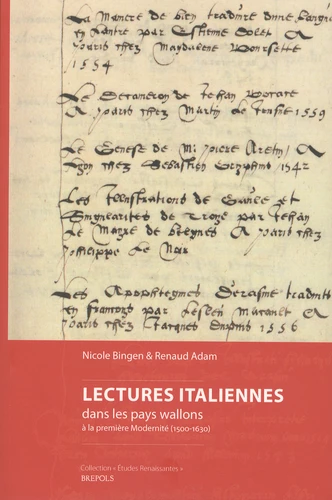 La Maniere de bien traduire d'une langue
en l'autre par Estienne Dolet A
Paris chez Magdalene Boursette
1554
Le Decameron de Jehan Bocace
A Paris chez Martin le Jeusne 1559
Le Genese de Mr Pierre Aretin A
Lyon chez Sebastien Gryphius 1542
Les Illustrations de Gaule et
Singularites de Troye par Jehan
Le Mayre de belges A Paris chez
Philippe Le Noir
Les Apophtegmes D'erasme traduits
en francois par Macault A
Paris chez Jacques 1556
Nicole Bingen & Renaud Adam
LECTURES ITALIENNES
dans les pays wallons
à la première Modernité (1500-1630)
Collection « Études Renaissantes »
BREPOLS